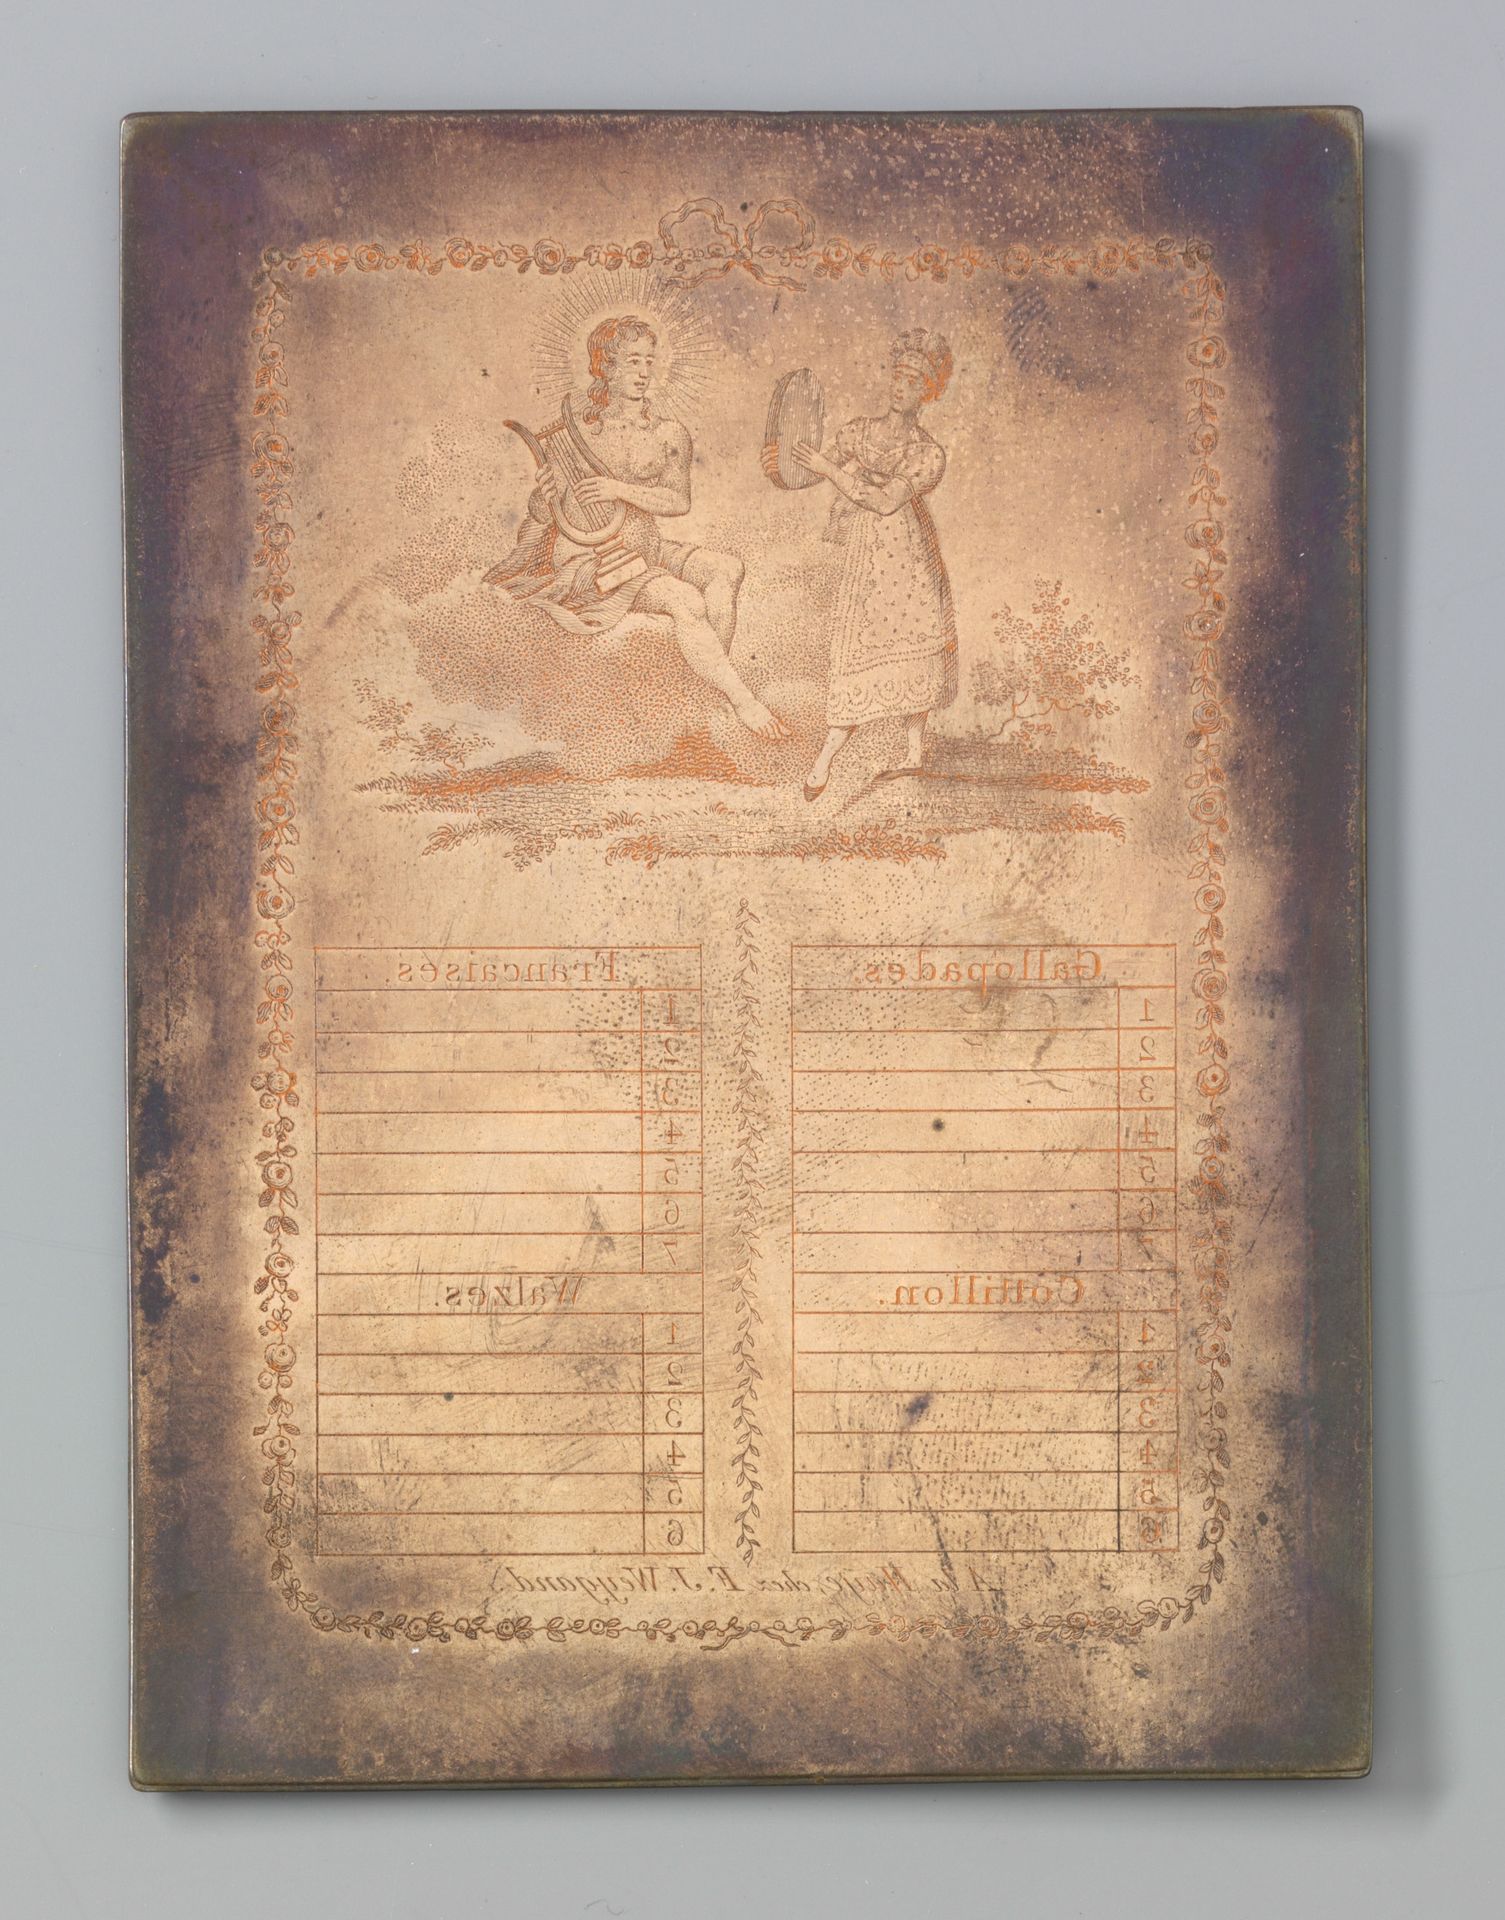 Gallopades.
1
2
3
4
5
6
7
Cottillon.
1
2
3
4
5
6
Francaises.
1
2
3
4
5
6
7
Walzes.
1
2
3
4
5
6
A la Haye, chez F. J. Weygand.